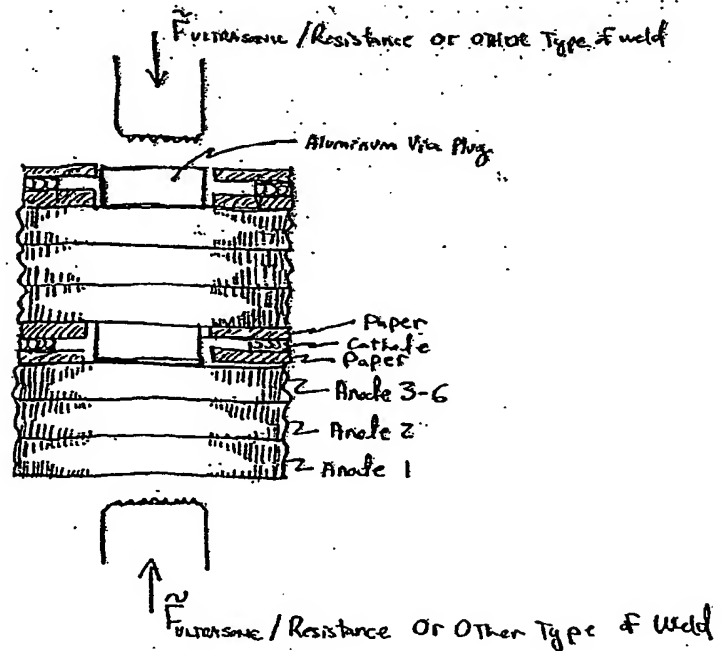 F̃ULTRASONIC / Resistance or other Type of weld
Aluminum Via Plug
Paper
Cathode
Paper
Anode 3-6
Anode 2
Anode 1
F̃ULTRASONIC / Resistance Or Other Type of Weld